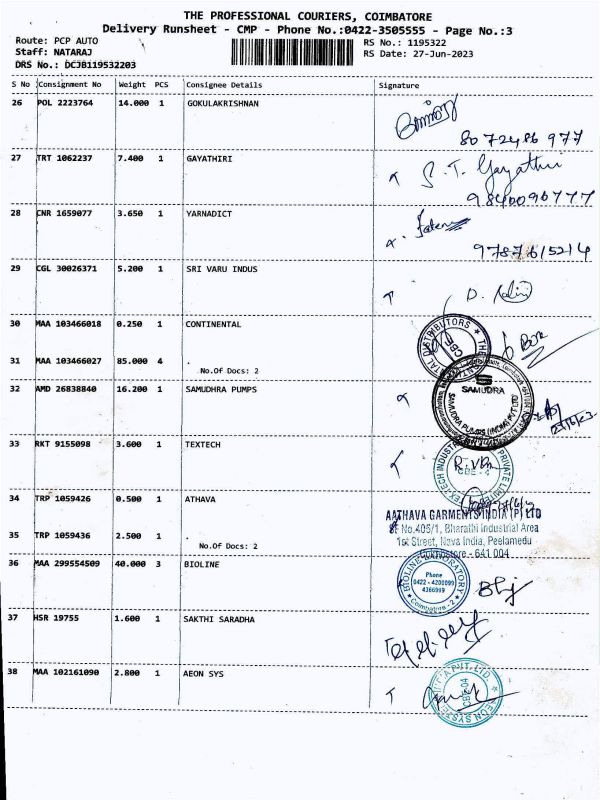 THE PROFESSIONAL COURIERS, COIMBATORE
Delivery Runsheet - CMP - Phone No.:0422-3505555 - Page No.:3
Route: PCP AUTO
RS No.: 1195322
Staff: NATARAJ
RS Date: 27-Jun-2023
DRS No.: DCJB119532203
S No Consignment No Weight PCS Consignee Details Signature
26 POL 2223764 14.000 1 GOKULAKRISHNAN
8072486977
27 TRT 1062237 7.400 1 GAYATHIRI
S.T. Gayathri
9840096777
28 CNR 1659077 3.650 1 YARNADICT
9787615214
29 CGL 30026371 5.200 1 SRI VARU INDUS
30 MAA 103466018 0.250 1 CONTINENTAL
31 MAA 103466027 85.000 4 .
No.Of Docs: 2
32 AMD 26838840 16.200 1 SAMUDHRA PUMPS
SAMUDRA
SAMUDRA PUMPS (INDIA) PVT LTD
33 RKT 9155098 3.600 1 TEXTECH
TEXTECH INDUS PRIVATE LIMITED
34 TRP 1059426 0.500 1 ATHAVA
AATHAVA GARMENTS INDIA (P) LTD
SF No.405/1, Bharathi Industrial Area
35 TRP 1059436 2.500 1 .
1st Street, Nava India, Peelamedu
No.Of Docs: 2
- 641 004
36 MAA 299554509 40.000 3 BIOLINE
BIOLINE LABORATORY
Phone
0422 - 4200099
4366999
Coimbatore - 2
37 HSR 19755 1.600 1 SAKTHI SARADHA
38 MAA 102161090 2.800 1 AEON SYS